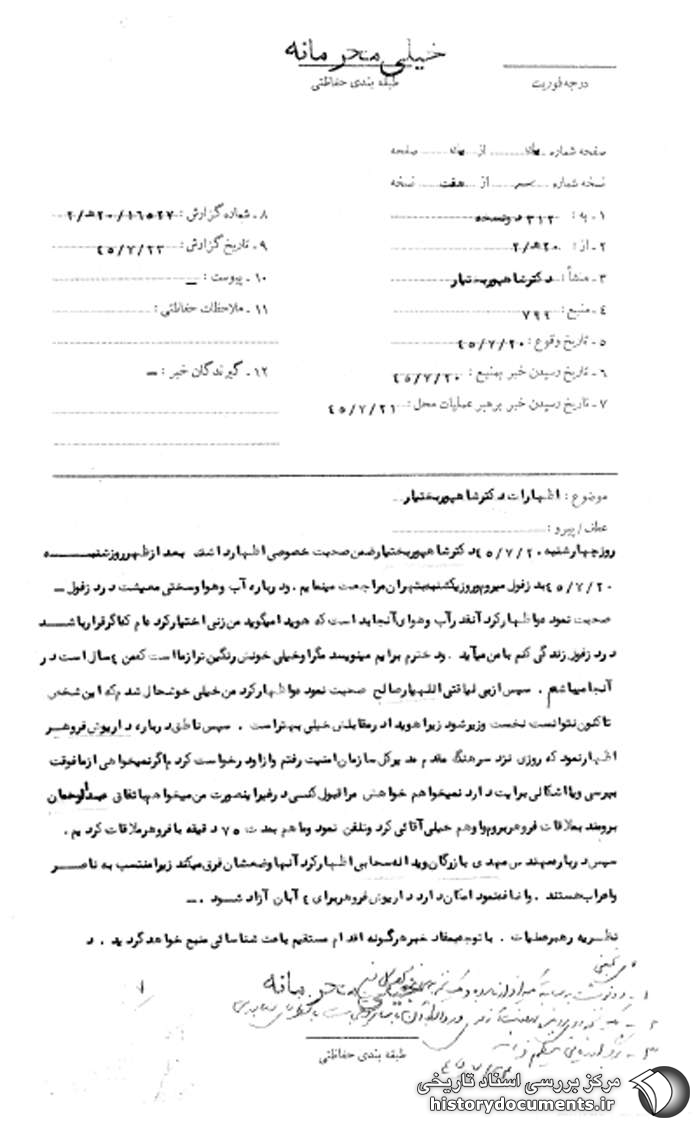 خیلی محرمانه
طبقه بندی حفاظتی
درجه فوریت
صفحه شماره یک از یک صفحه
نسخه شماره از هفت نسخه
۱ـ به : ۳۱۲ دونسخه
۲ـ از : ۲۰ هـ/۲
۳ـ منشأ : دکترشاهپوربختیار
۴ـ منبع : ۷۹۹
۵ـ تاریخ وقوع : ۴۵/۷/۲۰
۶ـ تاریخ رسیدن خبر بمنبع : ۴۵/۷/۲۰
۷ـ تاریخ رسیدن خبر برهبر عملیات محل : ۴۵/۷/۲۱
۸ـ شماره گزارش : ۲/هـ۲۰/۱۶۵۲۷
۹ـ تاریخ گزارش : ۴۵/۷/۲۳
۱۰ـ پیوست : ـ
۱۱ـ ملاحظات حفاظتی :
۱۲ـ گیرندگان خبر : ـ
موضوع : اظهارات دکترشاهپوربختیار
عطف / پیرو :
روزچهارشنبه ۴۵/۷/۲۰ دکترشاهپوربختیارضمن صحبت خصوصی اظهارداشت بعدازظهرروزشنبه
۴۵/۷/۲۰ بدزفول میروم وروزیکشنبه بتهران مراجعت مینمایم . ودرباره آب وهوا وسختی معیشت دردزفول ـ
صحبت نمود واظهارکرد آنقدرآب وهوای آنجابد است که هویدا میگوید من زنی اختیارکرده ام که اگرقرارباشد
دردزفول زندگی کنم بامن میآید . ودخترم برایم مینویسد مگراوخیلی خونش رنگین ترازمااست که من ۴ سال است در
آنجا میباشم . سپس ازبی لیاقتی اللهیارصالح صحبت نمود واظهارکرد من خیلی خوشحال شدم که این شخص
تاکنون نتوانست نخست وزیرشود زیرا هویدا درمقابلش خیلی بهتراست . سپس ناطق درباره داریوش فروهر
اظهارنمود که روزی نزد سرهنگ مقدم مدیرکل سازمان امنیت رفتم وازاودرخواست کردم اگرنمیخواهی ازمافوقت
بپرسی ویااشکالی برایت دارد نمیخواهم خواهش مراقبول کنی درغیراینصورت من میخواهم باتفاق عبدالرحمان
برومند بملاقات فروهربروم واوهم خیلی آقائی کرد وتلفن نمود وماهم بمدت ۷۵ دقیقه بافروهرملاقات کردیم .
سپس درباره مهندس مهدی بازرگان ویداله سحابی اظهارکرد آنها وضعشان فرق میکند زیرامنتسب به ناصر
واعراب هستند . واضافه نمود امکان دارد داریوش فروهربرای ۴ آبان آزاد شود . ـ
نظریه رهبرعملیات . باتوجه بمفاد خبرهرگونه اقدام مستقیم باعث شناسائی منبع خواهدگردید . د
خیلی محرمانه
طبقه بندی حفاظتی
مرکز بررسی اسناد تاریخی
historydocuments.ir